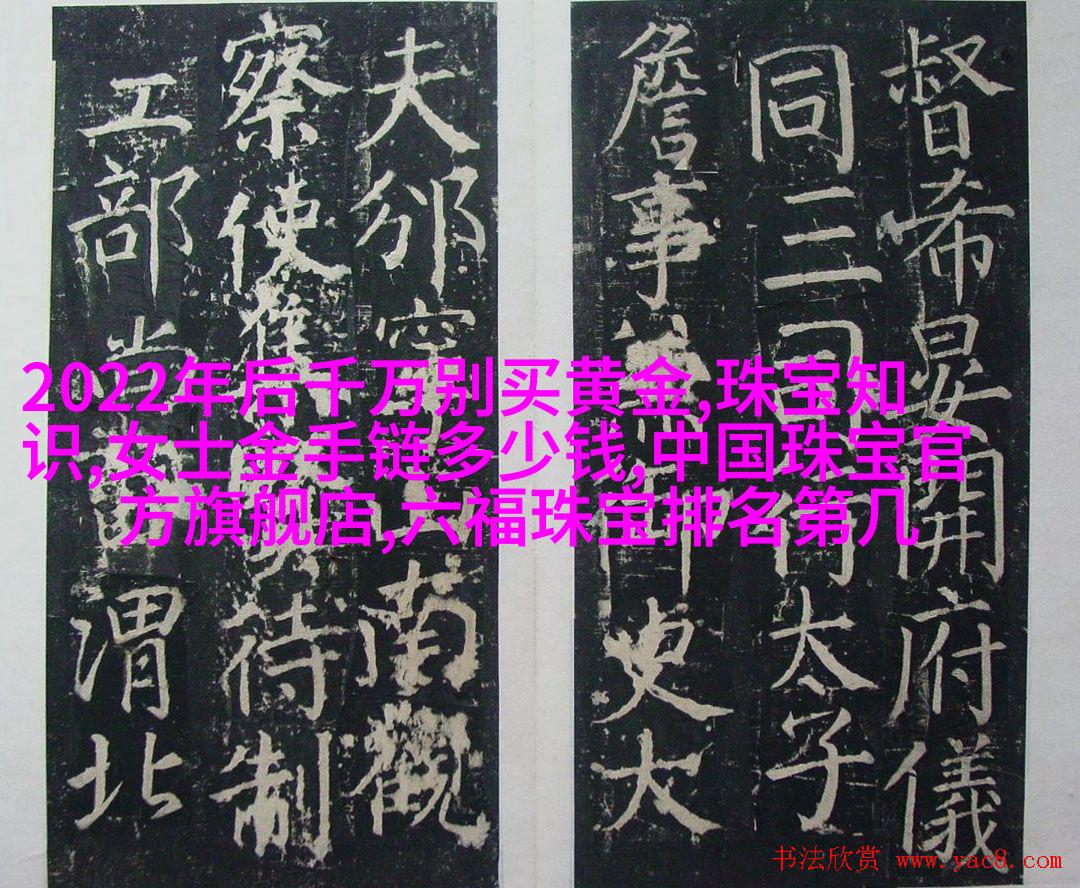 督希晏開府儀
同三司太子
詹事史大
夫邠寧南觀
察使待制
工部尚渭北
2022年后千万别买黄金,珠宝知
识,女士金手链多少钱,中国珠宝官
方旗舰店,六福珠宝排名第几
书法欣赏 www.yac8.com